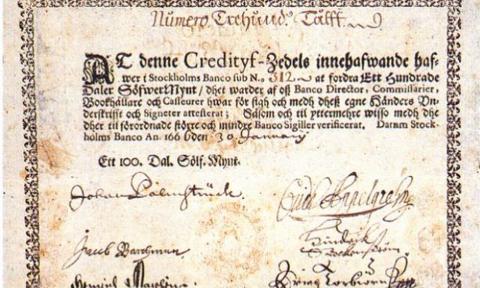 Numero Trehund: Tålff
AT denne Credityf-Zedels innehafwande haf-
wer i Stockholms Banco sub N.o 312 at fordra Ett Hundrade
Daler SölfwerMynt / dhet warder af oß Banco Director, Commissarier,
Bookhållare och Casseurer hwar för sigh och medh dheß egne Händers Un-
derskrifft och Signeter attesterat; Såsom och til yttermehre wisso medh dhe
dher til förordnade större och mindre Banco Sigiller verificerat, Datum Stock-
holms Banco An. 1666 den 30 January
Ett 100. Dal. Sölf. Mynt.
Johan Palmstruck
Jacob
Hinrich